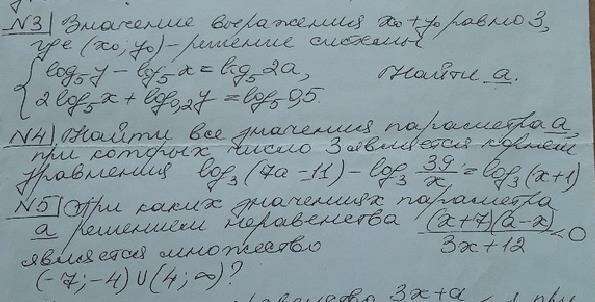 №3 Значение выражения x₀+y₀ равно 3,
где (x₀; y₀) – решение системы
{ log₅ y – log₅ x = log₅ 2a,
2 log₅ x + log₀,₂ y = log₅ 0,5
Найти a.
№4 Найти все значения параметра a,
при которых число 3 является корнем
уравнения log₃ (7a – 11) – log₃ 39/x = log₃ (x+1)
№5 При каких значениях параметра
a решением неравенства (x+7)(a–x)/3x+12 < 0
является множество
(–7; –4) ∪ (4; ∞)?
3x+a